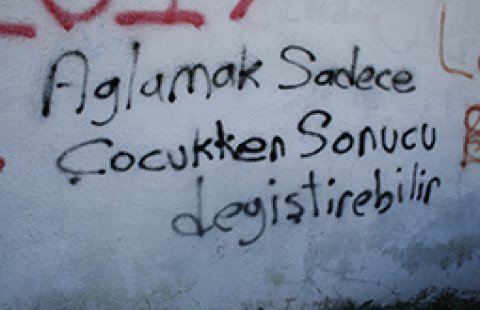 Aglamak Sadece
Çocukken Sonucu
degiştirebilir